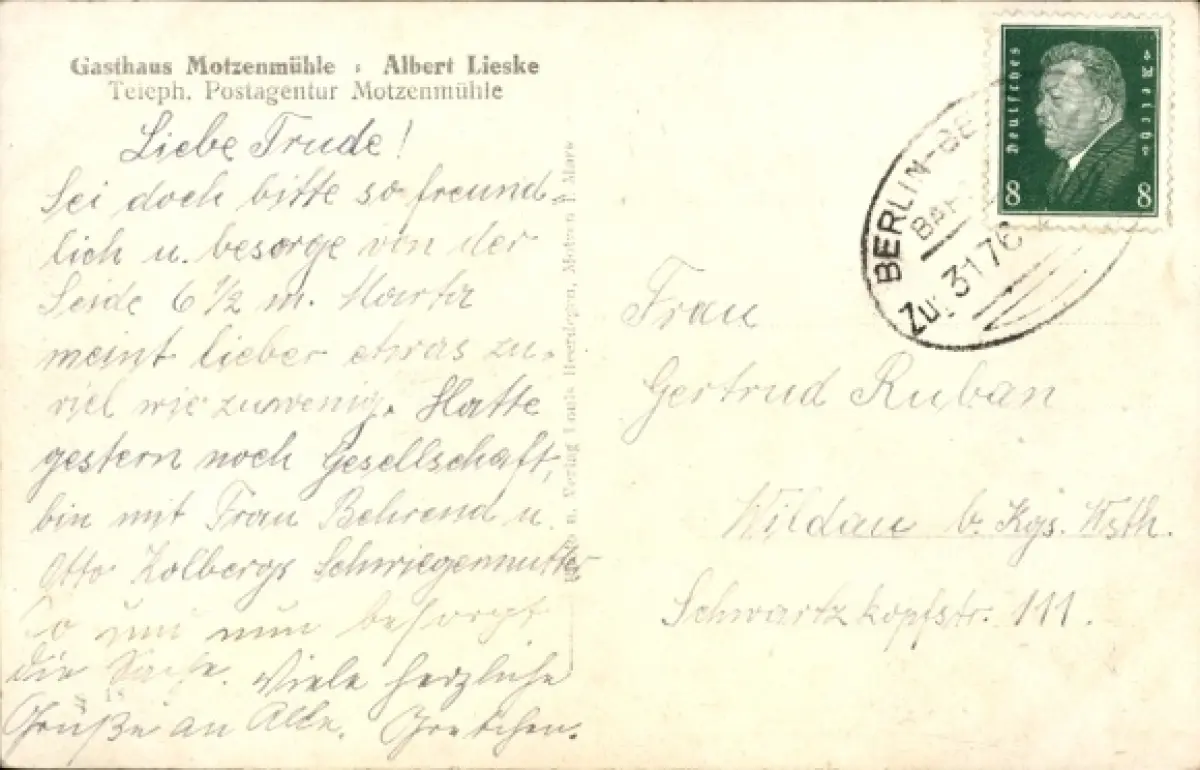 Gasthaus Motzenmühle : Albert Lieske
Teleph. Postagentur Motzenmühle
Liebe Trude!
Sei doch bitte so freund-
lich u. besorge von der
Seide 6 1/2 m. Marta
meint lieber etwas zu-
viel wie zuwenig. Hatte
gestern noch Gesellschaft,
bin mit Frau Behrend u.
Otto Kolbergs Schwiegermutter
So nun besorgt
die Sache. Viele herzliche
Grüße an Alle. Gretchen.
u. Verlag Louis Motzen i. Mark
Deutsches Reich
8 8
BERLIN-BE
BAH
Zug 3176
Frau
Gertrud Ruban
Wildau b. Kgs. Wsth.
Schwartzkopfstr. 111.